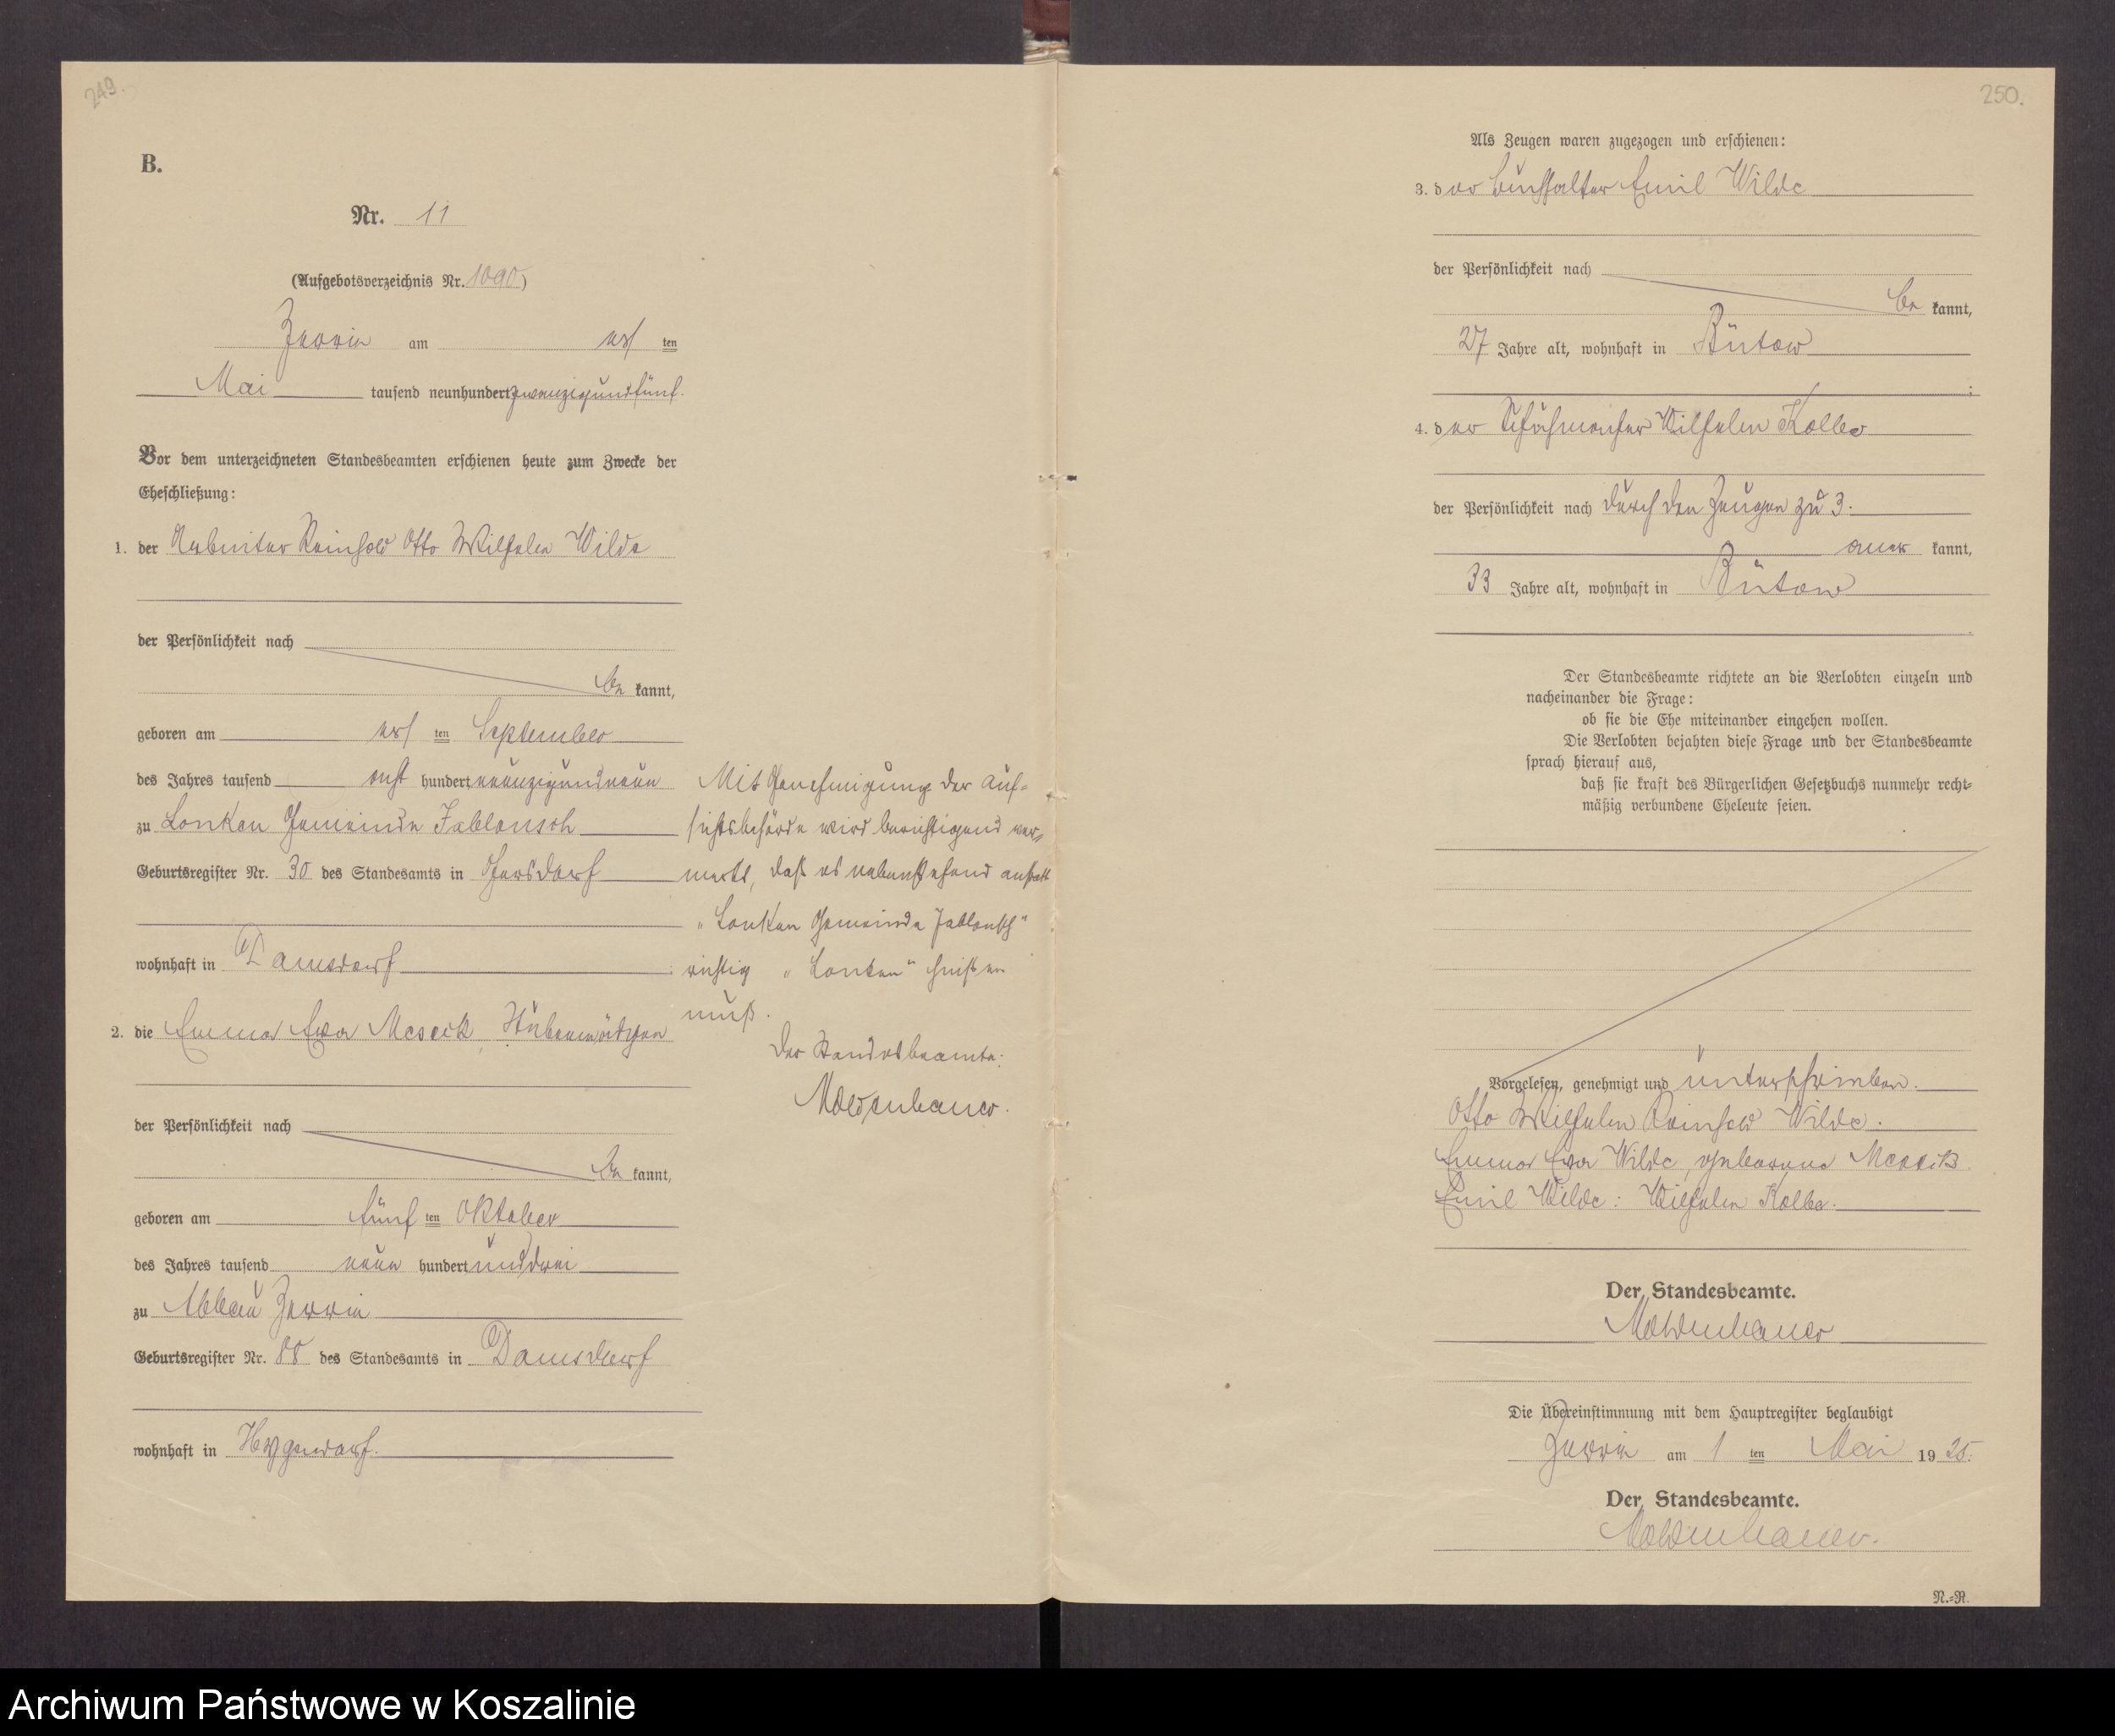 249.
B.
Nr. 11
(Aufgebotsverzeichnis Nr. 1090)
Zerrin am ers ten
Mai tausend neunhundert zwanzigundfünf.
Vor dem unterzeichneten Standesbeamten erschienen heute zum Zwecke der
Eheschließung:
1. der Arbeiter Reinhold Otto Wilhelm Wilde
der Persönlichkeit nach
be kannt,
geboren am ers ten September
des Jahres tausend acht hundert neunzigundneun
zu Lonken Gemeinde Jablonsch
Geburtsregister Nr. 30 des Standesamts in Gersdorf
wohnhaft in Damsdorf
2. die Emma Eva Meseck,
der Persönlichkeit nach
be kannt,
geboren am fünf ten Oktober
des Jahres tausend neun hundert unddrei
zu Abbau Zerrin
Geburtsregister Nr. 88 des Standesamts in Damsdorf
wohnhaft in Hygendorf.
Mit Genehmigung der Auf-
sichtsbehörde wird berichtigend ver-
merkt, daß es nebenstehend anstatt
"Lonken Gemeinde Jablonsch"
richtig "Lonken" heißen
muß.
Der Standesbeamte:
Moldenhauer.
250.
Als Zeugen waren zugezogen und erschienen:
3. der Buchhalter Emil Wilde
der Persönlichkeit nach
be kannt,
27 Jahre alt, wohnhaft in Bütow
;
4. der Wilhelm Kolbe
der Persönlichkeit nach durch den Zeugen zu 3.
aner kannt,
33 Jahre alt, wohnhaft in Bütow
.
Der Standesbeamte richtete an die Verlobten einzeln und
nacheinander die Frage:
ob sie die Ehe miteinander eingehen wollen.
Die Verlobten bejahten diese Frage und der Standesbeamte
sprach hierauf aus,
daß sie kraft des Bürgerlichen Gesetzbuchs nunmehr recht-
mäßig verbundene Eheleute seien.
Vorgelesen, genehmigt und unterschrieben.
Otto Wilhelm Reinhold Wilde.
Emma Eva Wilde, geborene Meseck
Emil Wilde: Wilhelm Kolbe.
Der Standesbeamte.
Moldenhauer
Die Übereinstimmung mit dem Hauptregister beglaubigt
Zerrin am 1 ten Mai 1925.
Der Standesbeamte.
Moldenhauer.
N.-R.
Archiwum Państwowe w Koszalinie